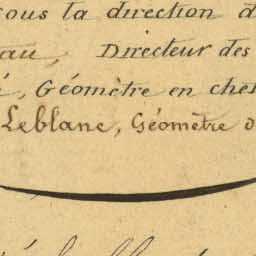 sous la direction d
au, Directeur des
é, Géomètre en chef
Leblanc, Géomètre d